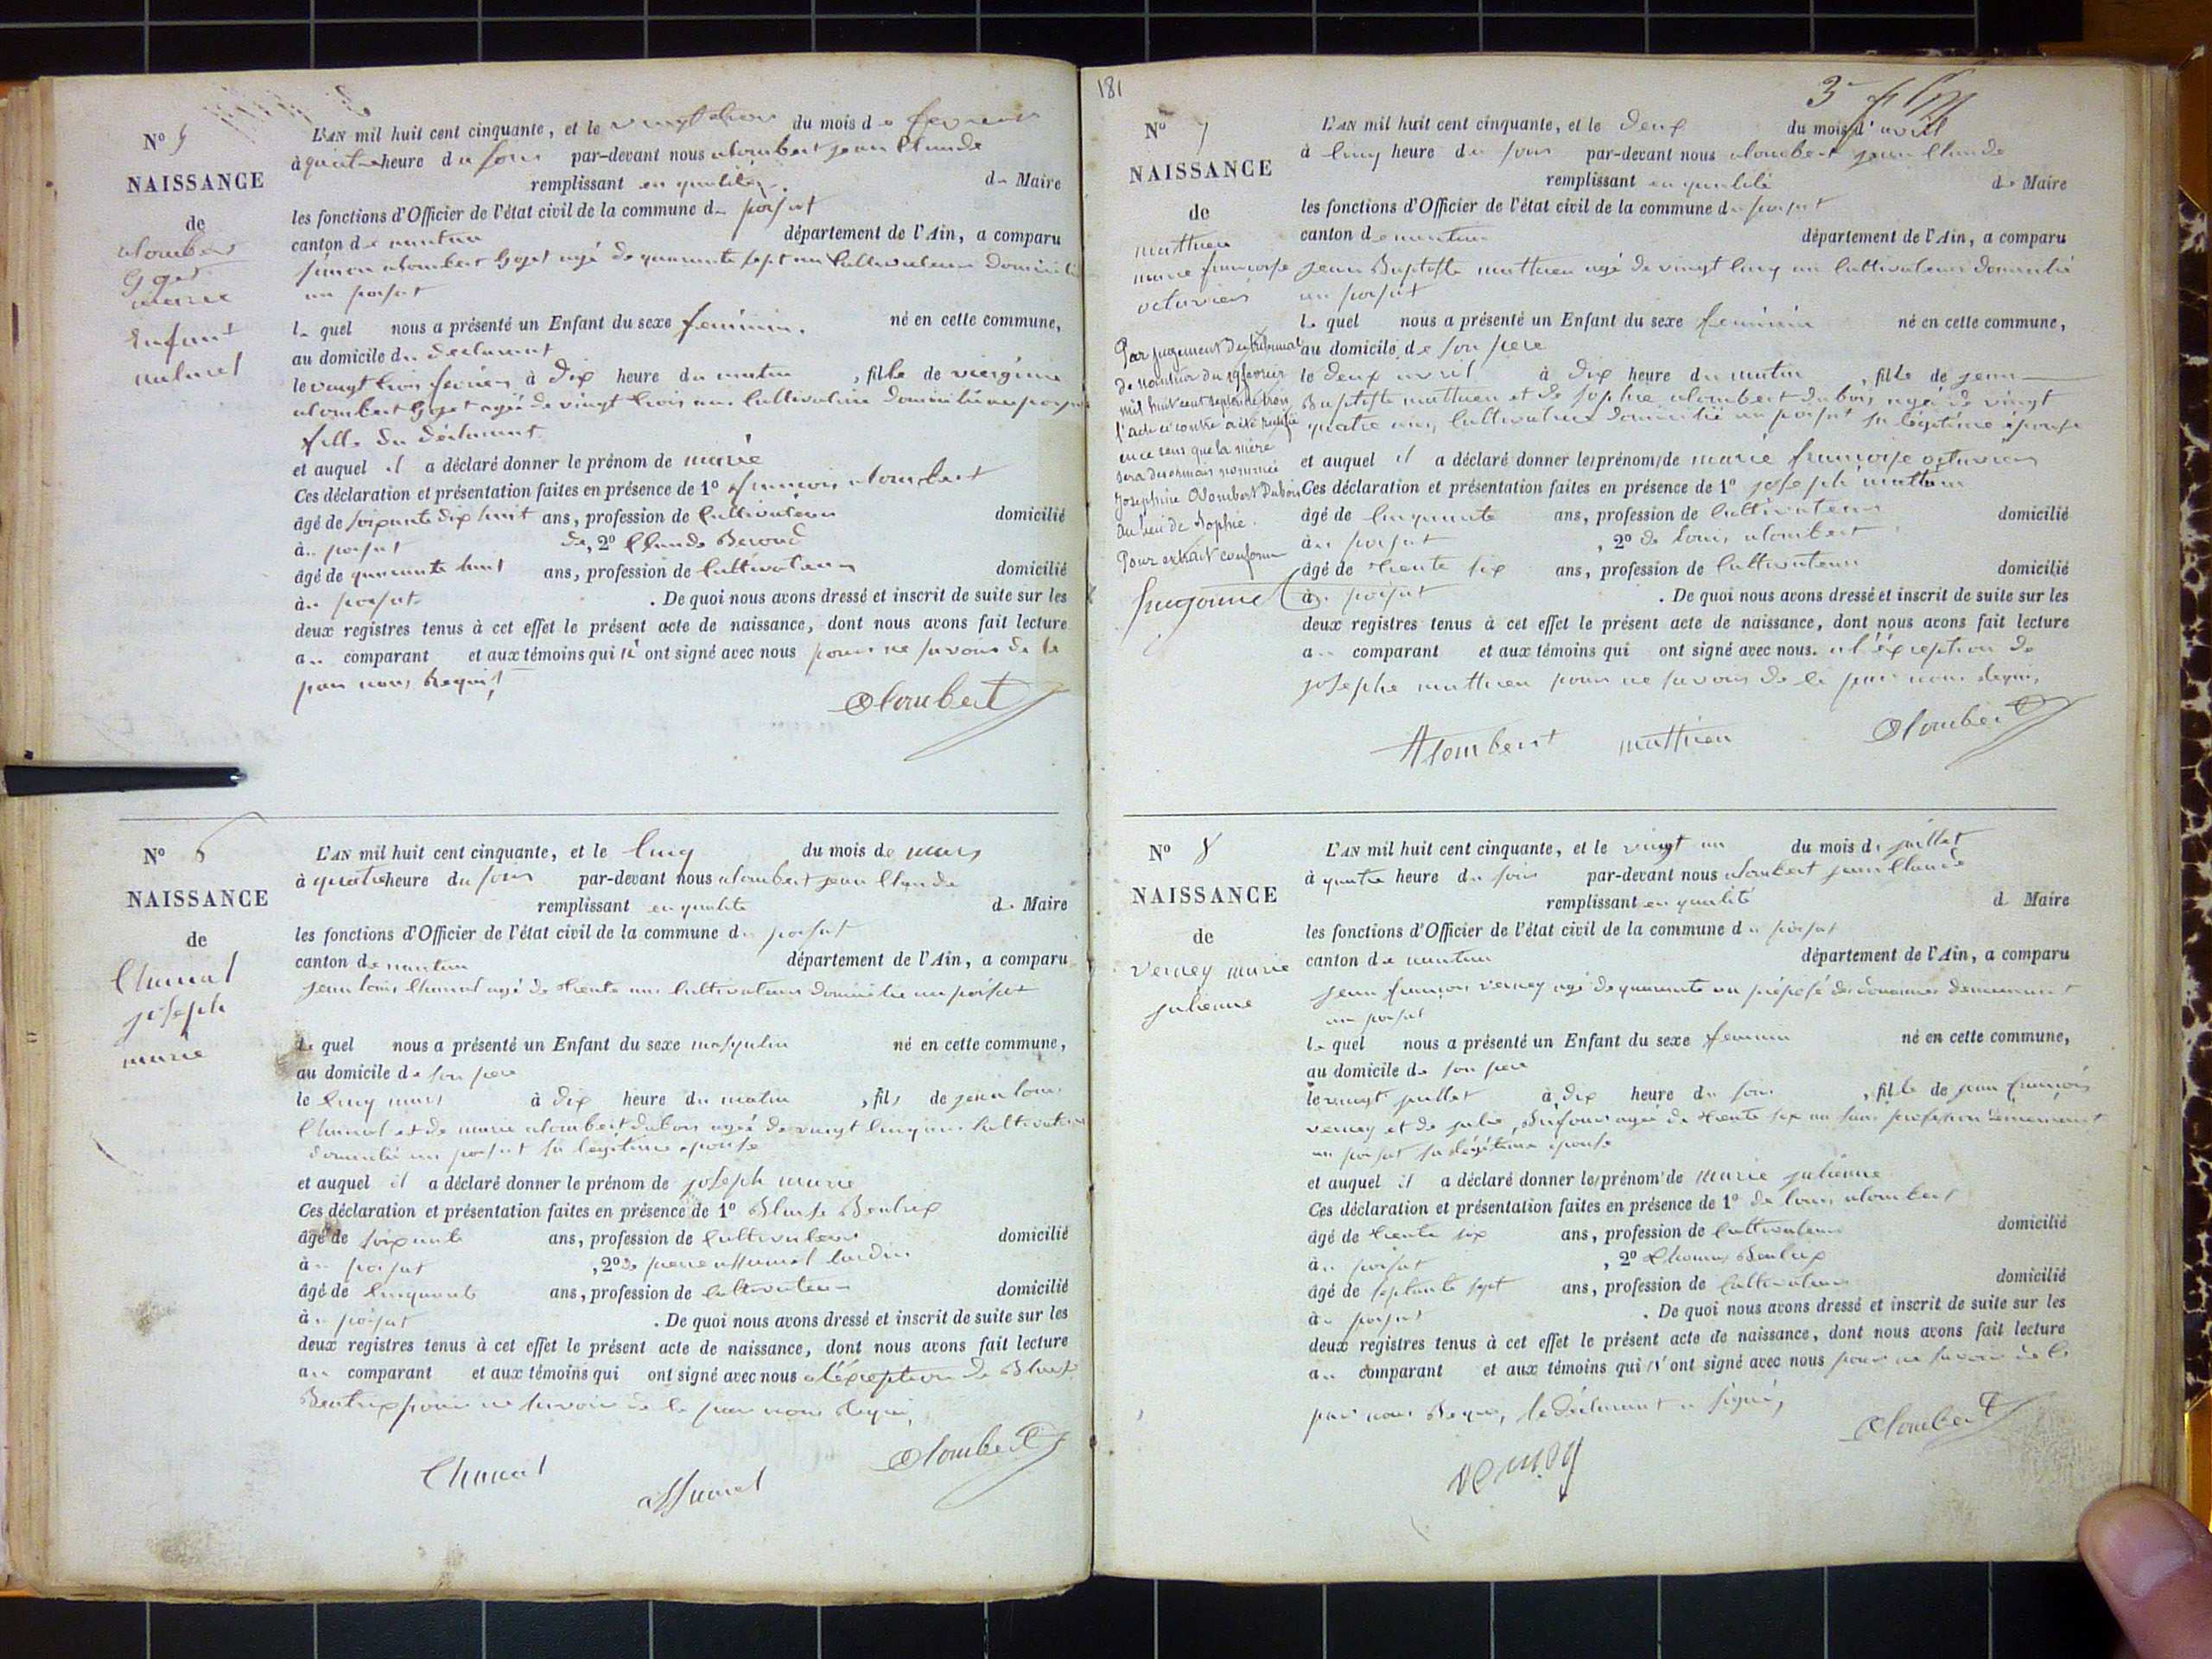 N° 5
NAISSANCE
de
alombert
Goget
marie
Enfant
naturel
L'AN mil huit cent cinquante, et le vingt trois du mois de fevrier
à quatre heure du soir par-devant nous alombert jean Claude
remplissant en qualité de Maire
les fonctions d'Officier de l'état civil de la commune du poisat
canton de nantua département de l'Ain, a comparu
simon alombert Goget agé de quarante sept ans Cultivateur domicilié
au poisat
le quel nous a présenté un Enfant du sexe feminin. né en cette commune,
au domicile du declarant
le vingt trois fevrier à dix heure du matin , fille de viergine
alombert Goget agée de vingt trois ans Cultivatrice domiciliée au poisat
fille du déclarant
et auquel il a déclaré donner le prénom de marie
Ces déclaration et présentation faites en présence de 1° francois alombert
âgé de soixante dix huit ans, profession de Cultivateur domicilié
au poisat de, 2° Claude Beroud
âgé de quarante huit ans, profession de Cultivateur domicilié
au poisat . De quoi nous avons dressé et inscrit de suite sur les
deux registres tenus à cet effet le présent acte de naissance, dont nous avons fait lecture
au comparant et aux témoins qui n'ont signé avec nous pour ne savoir de le
par nous Requi
Alombert
N° 6
NAISSANCE
de
Chanal
joseph
marie
L'AN mil huit cent cinquante, et le Cinq du mois de mars
à quatre heure du soir par-devant nous alombert jean Claude
remplissant en qualité de Maire
les fonctions d'Officier de l'état civil de la commune du poisat
canton de nantua département de l'Ain, a comparu
jean louis Chanal agé de trente ans Cultivateur domicilié au poisat
le quel nous a présenté un Enfant du sexe masqulin né en cette commune,
au domicile de son pere
le Cinq mars à dix heure du matin , fils de jean louis
Chanal et de marie alombert dubois agée de vingt Cinq ans Cultivatrice
domicilié au poisat sa legitime epouse
et auquel il a déclaré donner le prénom de joseph marie
Ces déclaration et présentation faites en présence de 1° Blaise Beatrix
âgé de soixante ans, profession de Cultivateur domicilié
au poisat , 2° de pierre assumel lurdin
âgé de Cinquante ans, profession de Cultivateur domicilié
au poisat . De quoi nous avons dressé et inscrit de suite sur les
deux registres tenus à cet effet le présent acte de naissance, dont nous avons fait lecture
au comparant et aux témoins qui ont signé avec nous a l'éxception de Blaise
Beatrix pour ne savoir de le par nous Requi,
Chanal
assumel
Alombert
181
N° 7
NAISSANCE
de
mathieu
marie francoise
octavien
Par jugement du tribunal
de nantua du 19 fevrier
mil huit cent septante trois
l'acte ci contre a été rectifié
en ce sens que la mère
sera désormais nommée
Josephine Alombert Dubois
au lieu de Sophie.
Pour extrait conforme
L'AN mil huit cent cinquante, et le deux du mois d'avril
à Cinq heure du soir par-devant nous alombert jean Claude
remplissant en qualité de Maire
les fonctions d'Officier de l'état civil de la commune du poisat
canton de nantua département de l'Ain, a comparu
jean Baptiste mathieu agé de vingt Cinq ans Cultivateur domicilié
au poisat
le quel nous a présenté un Enfant du sexe feminin né en cette commune,
au domicile de son pere
le deux avril à dix heure du matin , fille de jean
Baptiste mathieu et de sophie alombert dubois agée de vingt
quatre ans, Cultivatrice domicilié au poisat sa légitime épouse
et auquel il a déclaré donner le prénom de marie francoise octavien
Ces déclaration et présentation faites en présence de 1° joseph mathieu
âgé de Cinquante ans, profession de Cultivateur domicilié
au poisat , 2° de louis alombert
âgé de trente six ans, profession de Cultivateur domicilié
au poisat . De quoi nous avons dressé et inscrit de suite sur les
deux registres tenus à cet effet le présent acte de naissance, dont nous avons fait lecture
au comparant et aux témoins qui ont signé avec nous. a l'éxception de
josephe mathieu pour ne savoir de le par nous Requi,
Alombert mathieu Alombert
N° 8
NAISSANCE
de
verney marie
julienne
L'AN mil huit cent cinquante, et le vingt un du mois de juillet
à quatre heure du soir par-devant nous alombert jean Claude
remplissant en qualité de Maire
les fonctions d'Officier de l'état civil de la commune du poisat
canton de nantua département de l'Ain, a comparu
jean françois verney agé de quarante un préposé des douannes demeurant
au poisat
le quel nous a présenté un Enfant du sexe feminin né en cette commune,
au domicile de son pere
le vingt juillet à dix heure du soir , fille de jean francois
verney et de julie Dufour agée de trente six an sans profession demeurant
au poisat sa légitime épouse
et auquel il a déclaré donner le prénom de marie julienne
Ces déclaration et présentation faites en présence de 1° de louis alombert
âgé de trente six ans, profession de Cultivateur domicilié
au poisat , 2° Thomas Beatrix
âgé de septante sept ans, profession de Cultivateur domicilié
au poisat . De quoi nous avons dressé et inscrit de suite sur les
deux registres tenus à cet effet le présent acte de naissance, dont nous avons fait lecture
au comparant et aux témoins qui n'ont signé avec nous pour ne savoir de le
par nous Requi, le déclarant a signé,
verney
Alombert